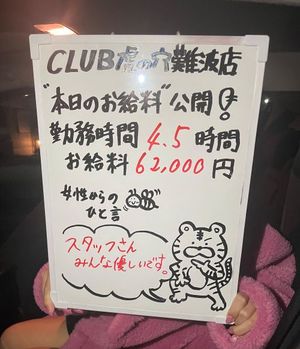 CLUB虎の穴難波店
"本日のお給料"公開!
勤務時間4.5時間
お給料62,000円
女性からの
ひと言
スタッフさん
みんな優しいです。